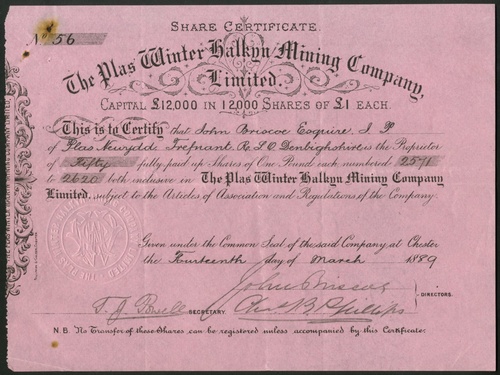 SHARE CERTIFICATE.
No 56
The Plas Winter Halkyn Mining Company,
Limited.
CAPITAL £12,000 IN 12000 SHARES OF £1 EACH.
This is to Certify that John Briscoe Esquire, J. P.
of Plas Newydd Trefnant. R.S.O. Denbighshire is the Proprietor
of Fifty fully paid up Shares of One Pound each numbered 2571
to 2620 both inclusive in The Plas Winter Halkyn Mining Company
Limited. subject to the Articles of Association and Regulations of the Company.
Given under the Common Seal of the said Company at Chester
the Fourteenth day of March 1889
John Briscoe
T. J. Powell SECRETARY Chas B. Phillips DIRECTORS.
N.B. No Transfer of these Shares can be registered unless accompanied by this Certificate.